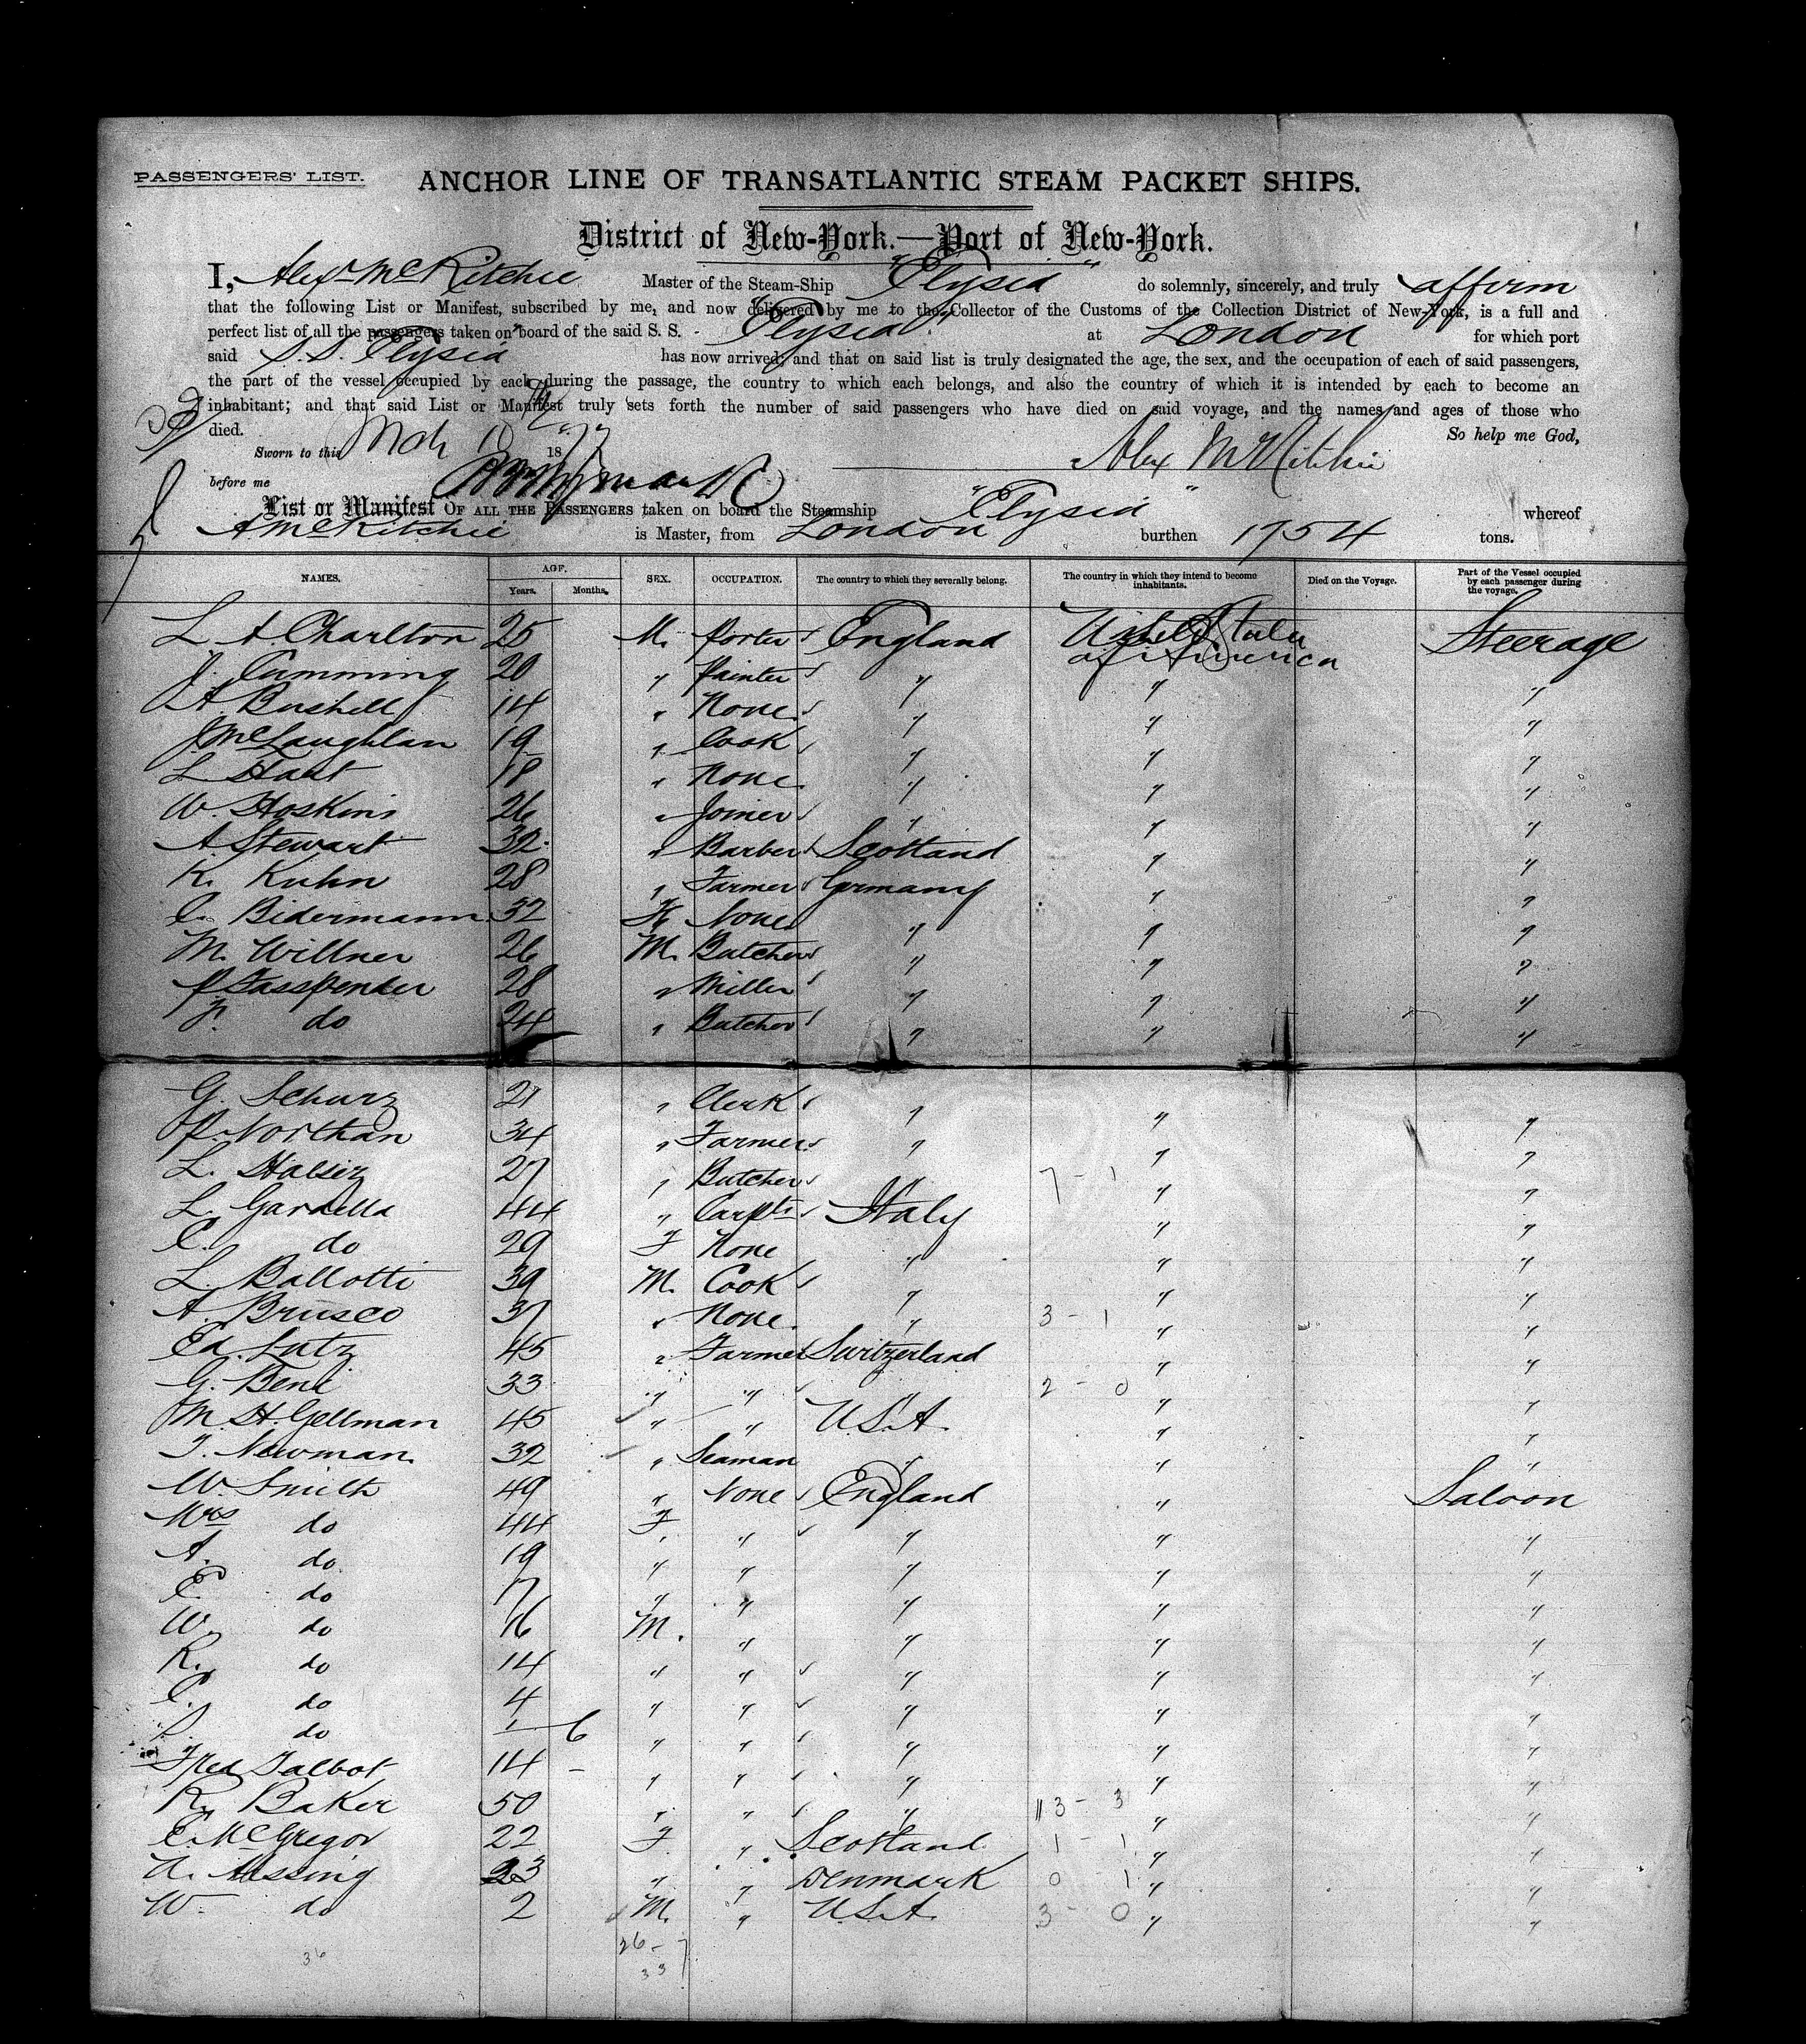 PASSENGERS' LIST.
ANCHOR LINE OF TRANSATLANTIC STEAM PACKET SHIPS.
District of New-York.—Port of New-York.
I, Alexr McRitchie Master of the Steam-Ship "Elysia" do solemnly, sincerely, and truly affirm
that the following List or Manifest, subscribed by me, and now delivered by me to the Collector of the Customs of the Collection District of New-York, is a full and
perfect list of all the passengers taken on board of the said S. S. "Elysia" at London for which port
said S.S. Elysia has now arrived; and that on said list is truly designated the age, the sex, and the occupation of each of said passengers,
the part of the vessel occupied by each during the passage, the country to which each belongs, and also the country of which it is intended by each to become an
inhabitant; and that said List or Manifest truly sets forth the number of said passengers who have died on said voyage, and the names and ages of those who
died. So help me God,
Sworn to this Mch 1877 Alex McRitchie
before me
List or Manifest OF ALL THE PASSENGERS taken on board the Steamship "Elysia" whereof
A McRitchie is Master, from London burthen 1754 tons.
NAMES. AGE. Years. Months. SEX. OCCUPATION. The country to which they severally belong. The country in which they intend to become inhabitants. Died on the Voyage. Part of the Vessel occupied by each passenger during the voyage.
L A Charlton 25 M. Porter England United States of America Steerage
J. Cumming 20 " Painter " " "
A Bushell 14 " None " " "
J McLaughlan 19 " Cook " " "
L Hart 18 " None " " "
W. Hoskins 26 " Joiner " " "
A Stewart 32 " Barber Scotland " "
K. Kuhn 28 " Farmer Germany " "
C. Bidermann 32 F. None " " "
M. Willner 26 M. Butcher " " "
P Fasspender 28 " Miller " " "
F. do 24 " Butcher " " "
G. Schurz 21 " Clerk " " "
P. Northan 34 " Farmer " " "
L. Halsiz 27 " Butcher " 7 - 1 " "
L. Gardella 44 " Carptr Italy " "
C. do 29 F None " " "
L. Ballotti 39 M. Cook " " "
A. Brusco 37 " None. " 3 - 1 " "
Ed. Lutz 45 " Farmer Switzerland " "
G. Beni 33 " " " 2 - 0 " "
M. H. Gellman 45 " " U.S.A " "
T. Newman 32 " Seaman " " "
W. Smith 49 " None England " Saloon
Mrs do 44 F " " " "
A. do 19 " " " " "
E. do 17 " " " " "
W. do 16 M. " " " "
R. do 14 " " " " "
C. do 4 " " " " "
do 6 " " " " "
Fred Talbot 14 - " " " " "
R. Baker 50 " " " 13 - 3 " "
C. McGregor 22 F " Scotland 1 - 1 " "
23 " " Denmark 0 1 " "
W. do 2 M. " U.S.A. 3 - 0 " "
36 26 - 7
33